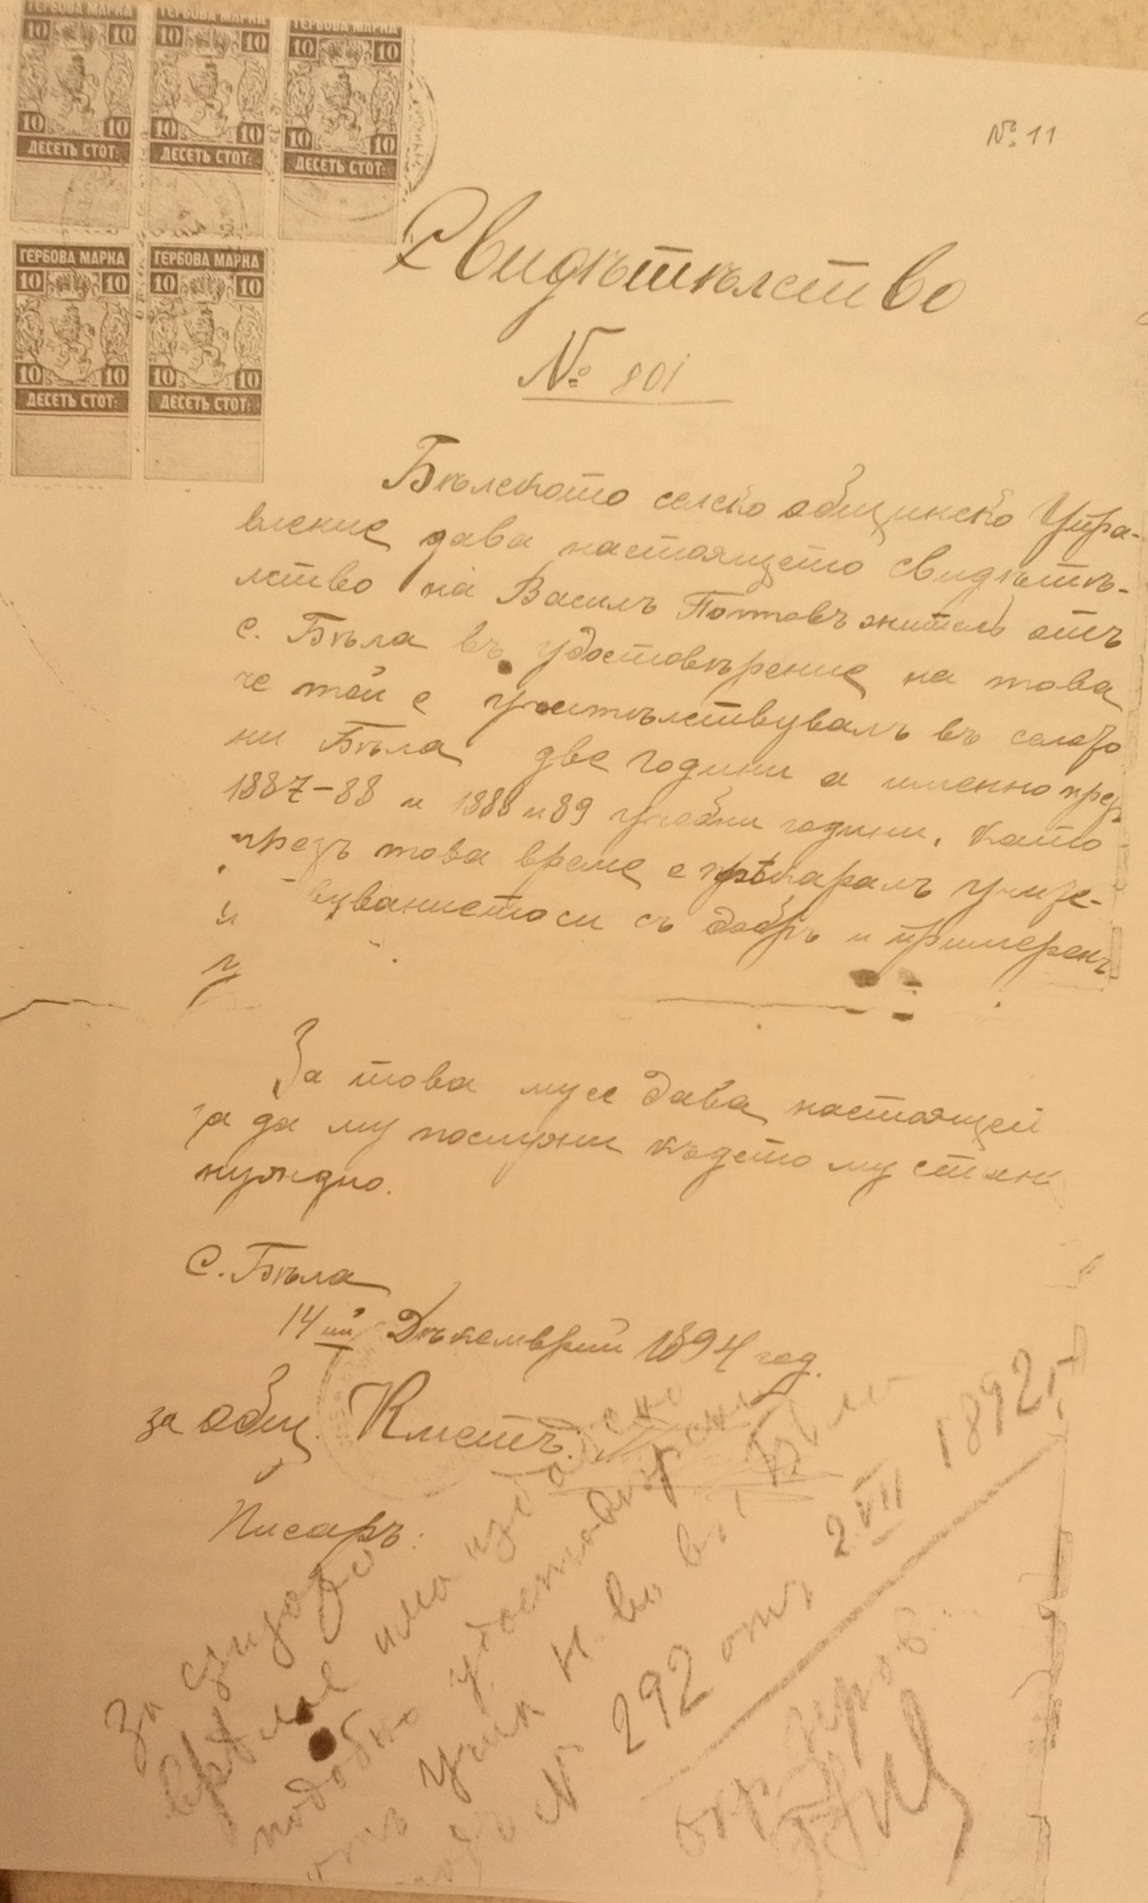 ГЕРБОВА МАРКА ГЕРБОВА МАРКА ГЕРБОВА МАРКА
10 10 10 10 10 10
10 10 10 10 10 10
ДЕСЕТЬ СТОТ: ДЕСЕТЬ СТОТ: ДЕСЕТЬ СТОТ:
ГЕРБОВА МАРКА ГЕРБОВА МАРКА
10 10 10 10
10 10 10 10
ДЕСЕТЬ СТОТ: ДЕСЕТЬ СТОТ:
№ 11
Свидѣтѣлство
№ 801
Бѣлското селско общинско Упра-
вление дава настоящето свидѣтѣ-
лство на Василъ Поповъ жителъ отъ
с. Бѣла въ удостовѣрение на това
че той е учителствувалъ въ
ни Бѣла две години а именно през
1887-88 и 1888 и 89 учебни години, като
презъ това време е прѣкаралъ учите-
вуваниетоси съ добръ и примеренъ
За това му се дава настоящей
за да му послужи където му стане
нуждно.
С. Бѣла
14 ий Дѣкемврий 1894 год.
за общ. Кметъ:
Писаръ:
За сущото
врѣме има издадено
подобно удостовѣрение
отъ учил. Н-во въ с. Бѣла
подъ № 292 отъ 2 VII 1892 г.
окр.